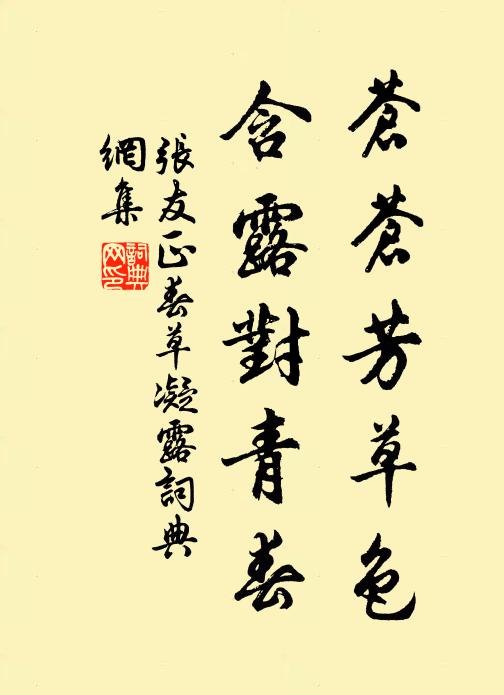 蒼蒼芳草色
含露對青春
張友正春草凝露詞典
網集
詞典
网印